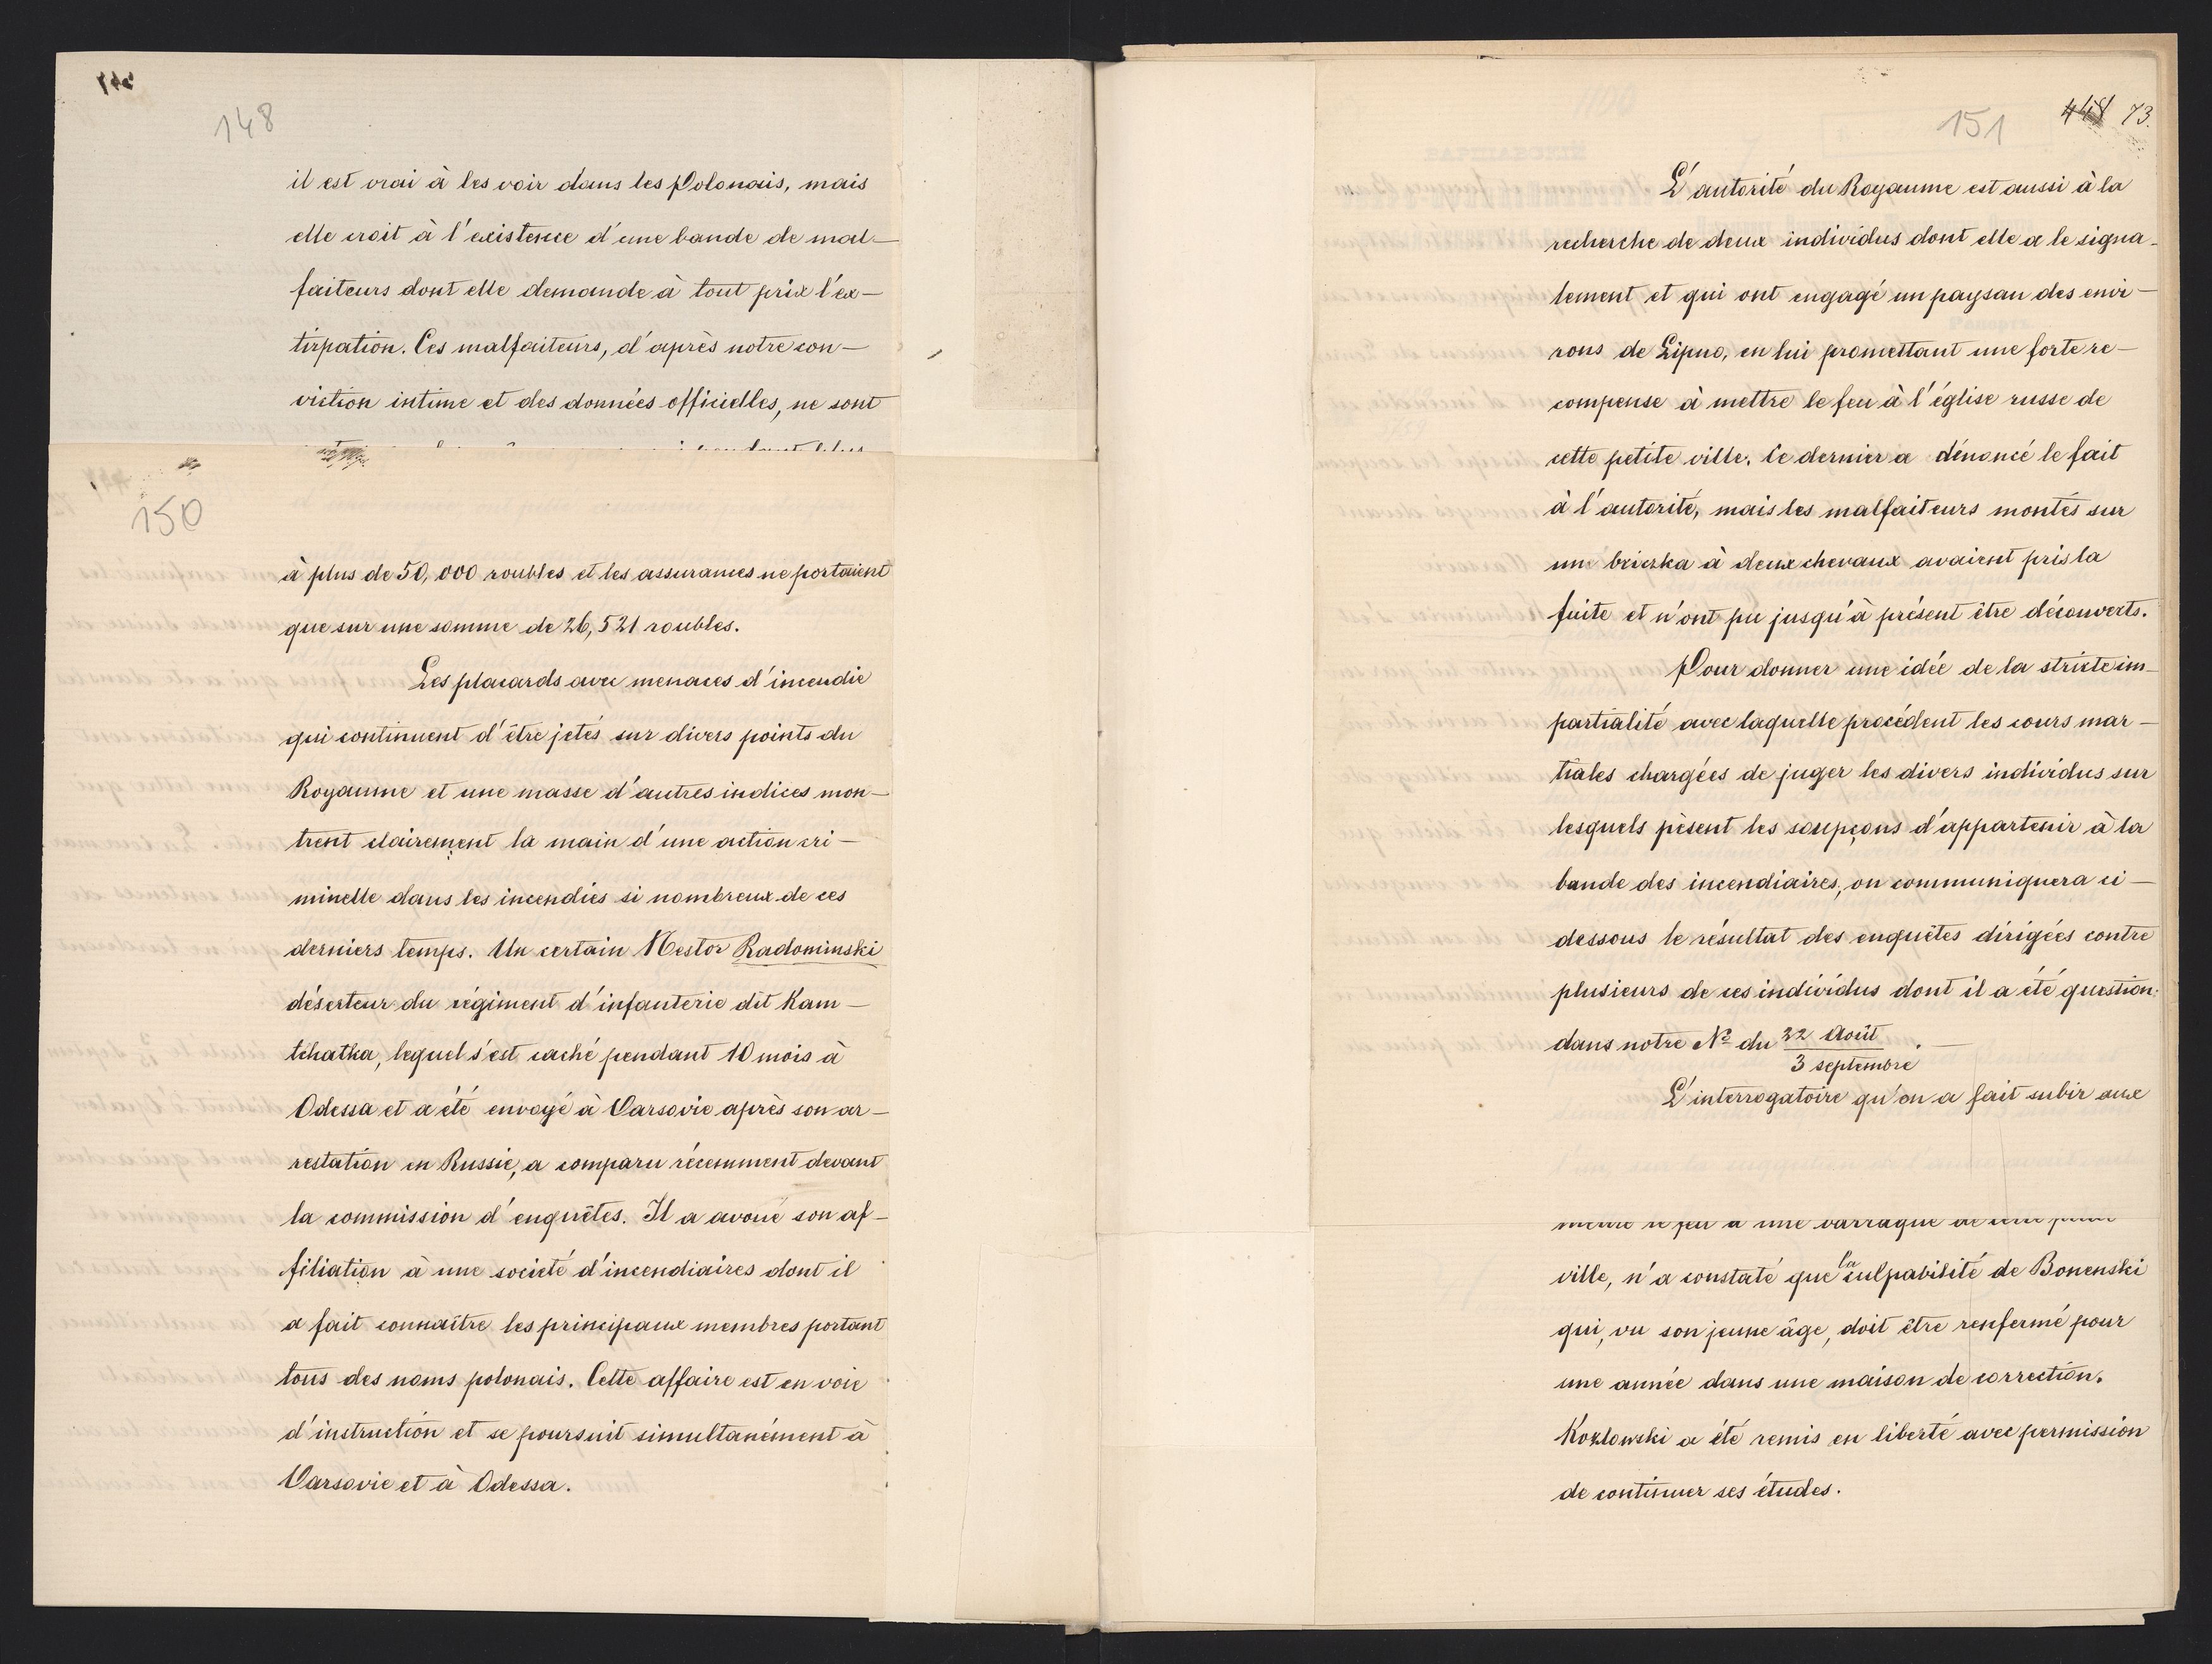 148
il est vrai à les voir dans les Polonais, mais
elle croit à l'existence d'une bande de mal-
faiteurs dont elle demande à tout prix l'ex-
tirpation. Ces malfaiteurs, d'après notre con-
viction intime et des données officielles, ne sont
150
à plus de 50,000 roubles et les assurances ne portaient
que sur une somme de 26,521 roubles.
Les placards avec menaces d'incendie
qui continuent d'être jetés sur divers points du
Royaume et une masse d'autres indices mon-
trent clairement la main d'une action cri-
minelle dans les incendies si nombreux de ces
derniers temps. Un certain Nestor Radominski
déserteur du régiment d'infanterie dit Kam-
tchatka, lequel s'est caché pendant 10 mois à
Odessa et a été envoyé à Varsovie après son ar-
restation en Russie, a comparu récemment devant
la commission d'enquêtes. Il a avoué son af-
filiation à une societé d'incendiaires dont il
a fait connaître les principaux membres portant
tous des noms polonais. Cette affaire est en voie
d'instruction et se poursuit simultanément à
Varsovie et à Odessa.
151
73.
L'autorité du Royaume est aussi à la
recherche de deux individus dont elle a le signa-
lement et qui ont engagé un paysan des envi-
rons de Lipno, en lui promettant une forte re-
compense à mettre le feu à l'église russe de
cette petite ville. Ce dernier a dénoncé le fait
à l'autorité, mais les malfaiteurs montés sur
un briczka à deux chevaux avaient pris la
fuite et n'ont pu jusqu'à présent être découverts.
Pour donner une idée de la stricte im-
partialité avec laquelle procédent les cours mar-
tiales chargées de juger les divers individus sur
lesquels pèsent les soupçons d'appartenir à la
bande des incendiaires, on communiquera ci-
dessous le résultat des enquêtes dirigées contre
plusieurs de ces individus dont il a été question
dans notre Nº du 22 Août
3 septembre.
L'interrogatoire qu'on a fait subir aux
mettre le feu a une barraque de cette petite
ville, n'a constaté que la culpabilité de Bonenski
qui, vu son jeune âge, doit être renfermé pour
une année dans une maison de correction.
Kozlowski a été remis en liberté avec permission
de continuer ses études.